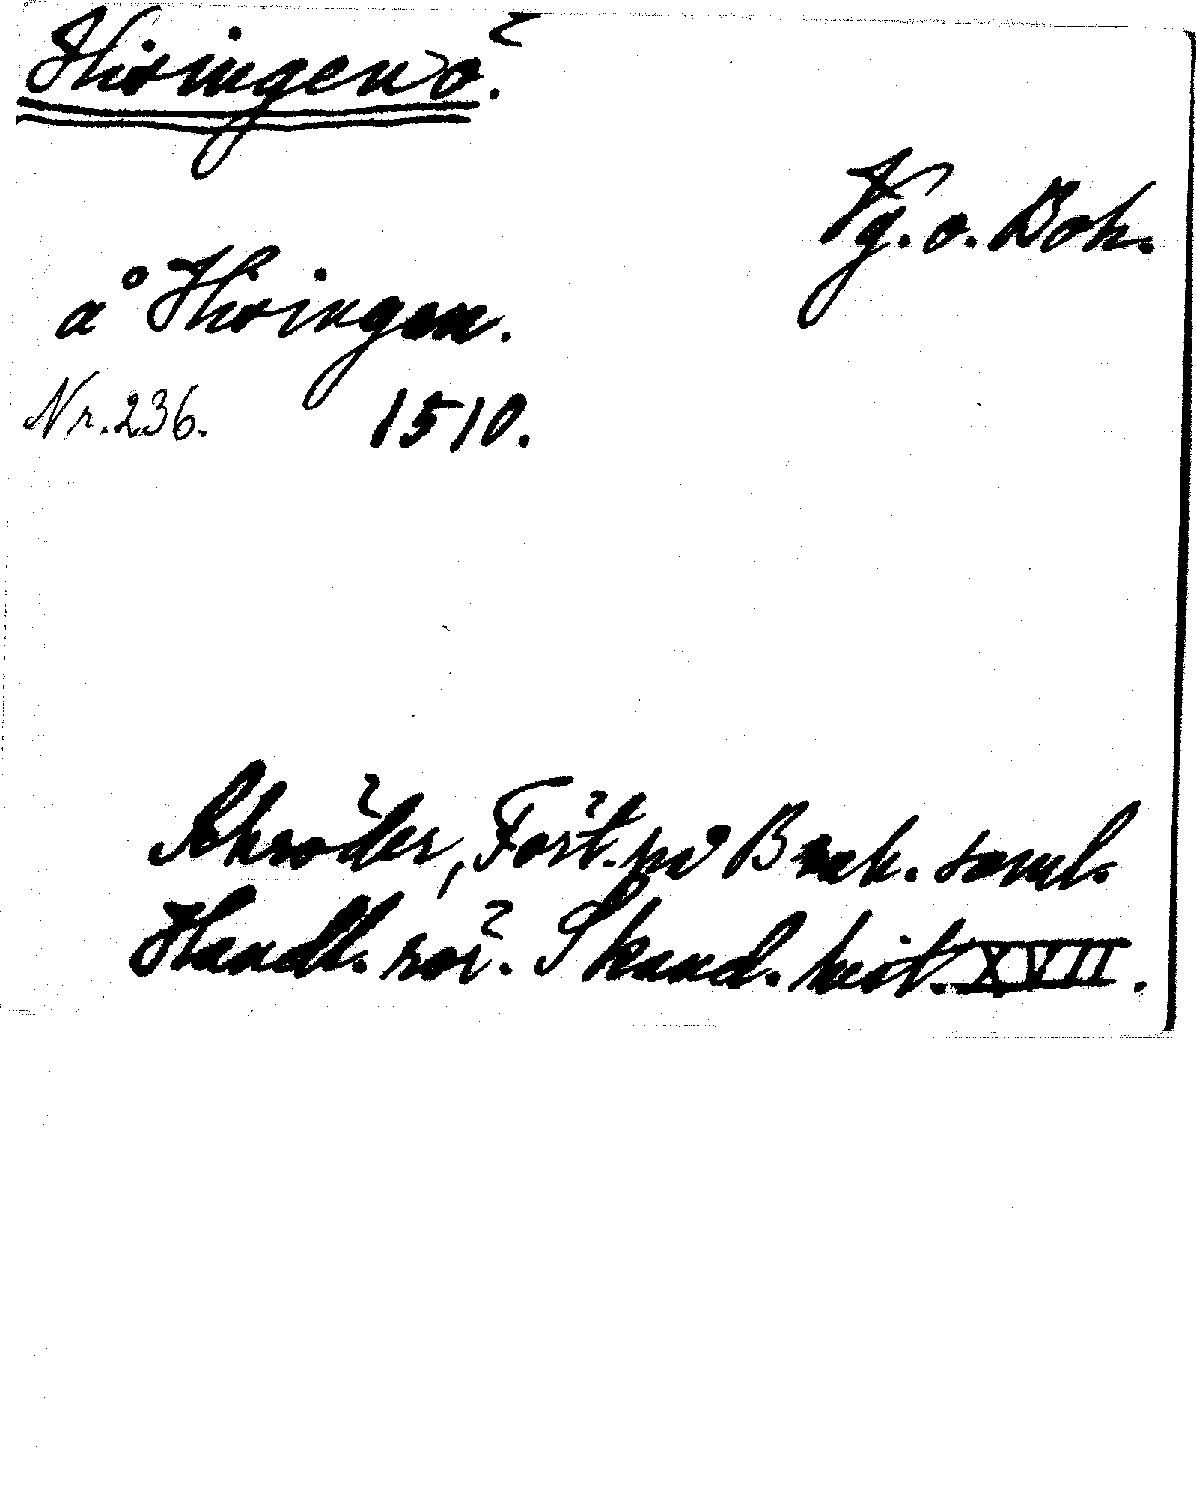 Hisingen ö.
Vg. o. Boh.
a° Hisingen.
Nr. 236. 1510.
Schröder, Fört. på Berch. saml.
Handl. rör. Skand. hist. XVII.